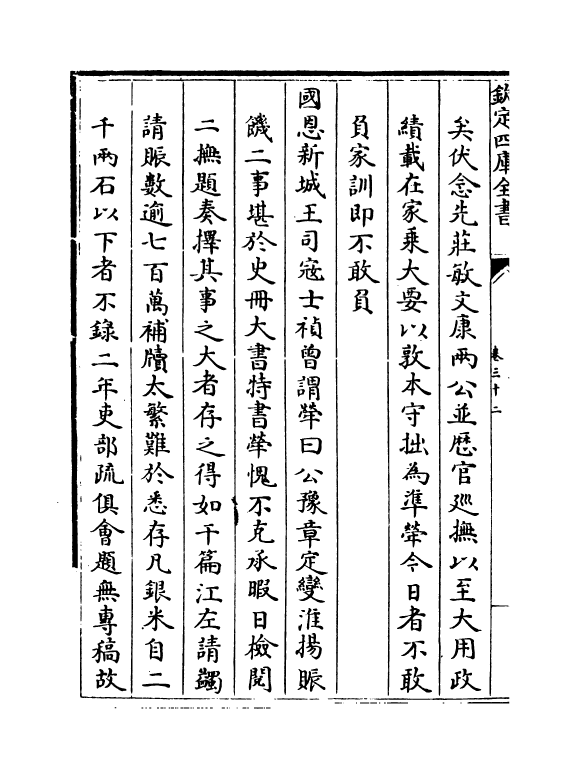 欽定四庫全書
卷三十二
矣伏念先莊敏文康兩公並歴官廵撫以至大用政
績載在家乗大要以敦本守拙為準犖今日者不敢
負家訓即不敢負
國恩新城王司寇士禎曾謂犖曰公豫章定變淮揚賑
饑二事堪於史冊大書特書犖愧不克承暇日檢閱
二撫題奏擇其事之大者存之得如干篇江左請蠲
請賑數逾七百萬補牘太繁難於悉存凡銀米自二
千兩石以下者不錄二年吏部疏俱會題無專稿故